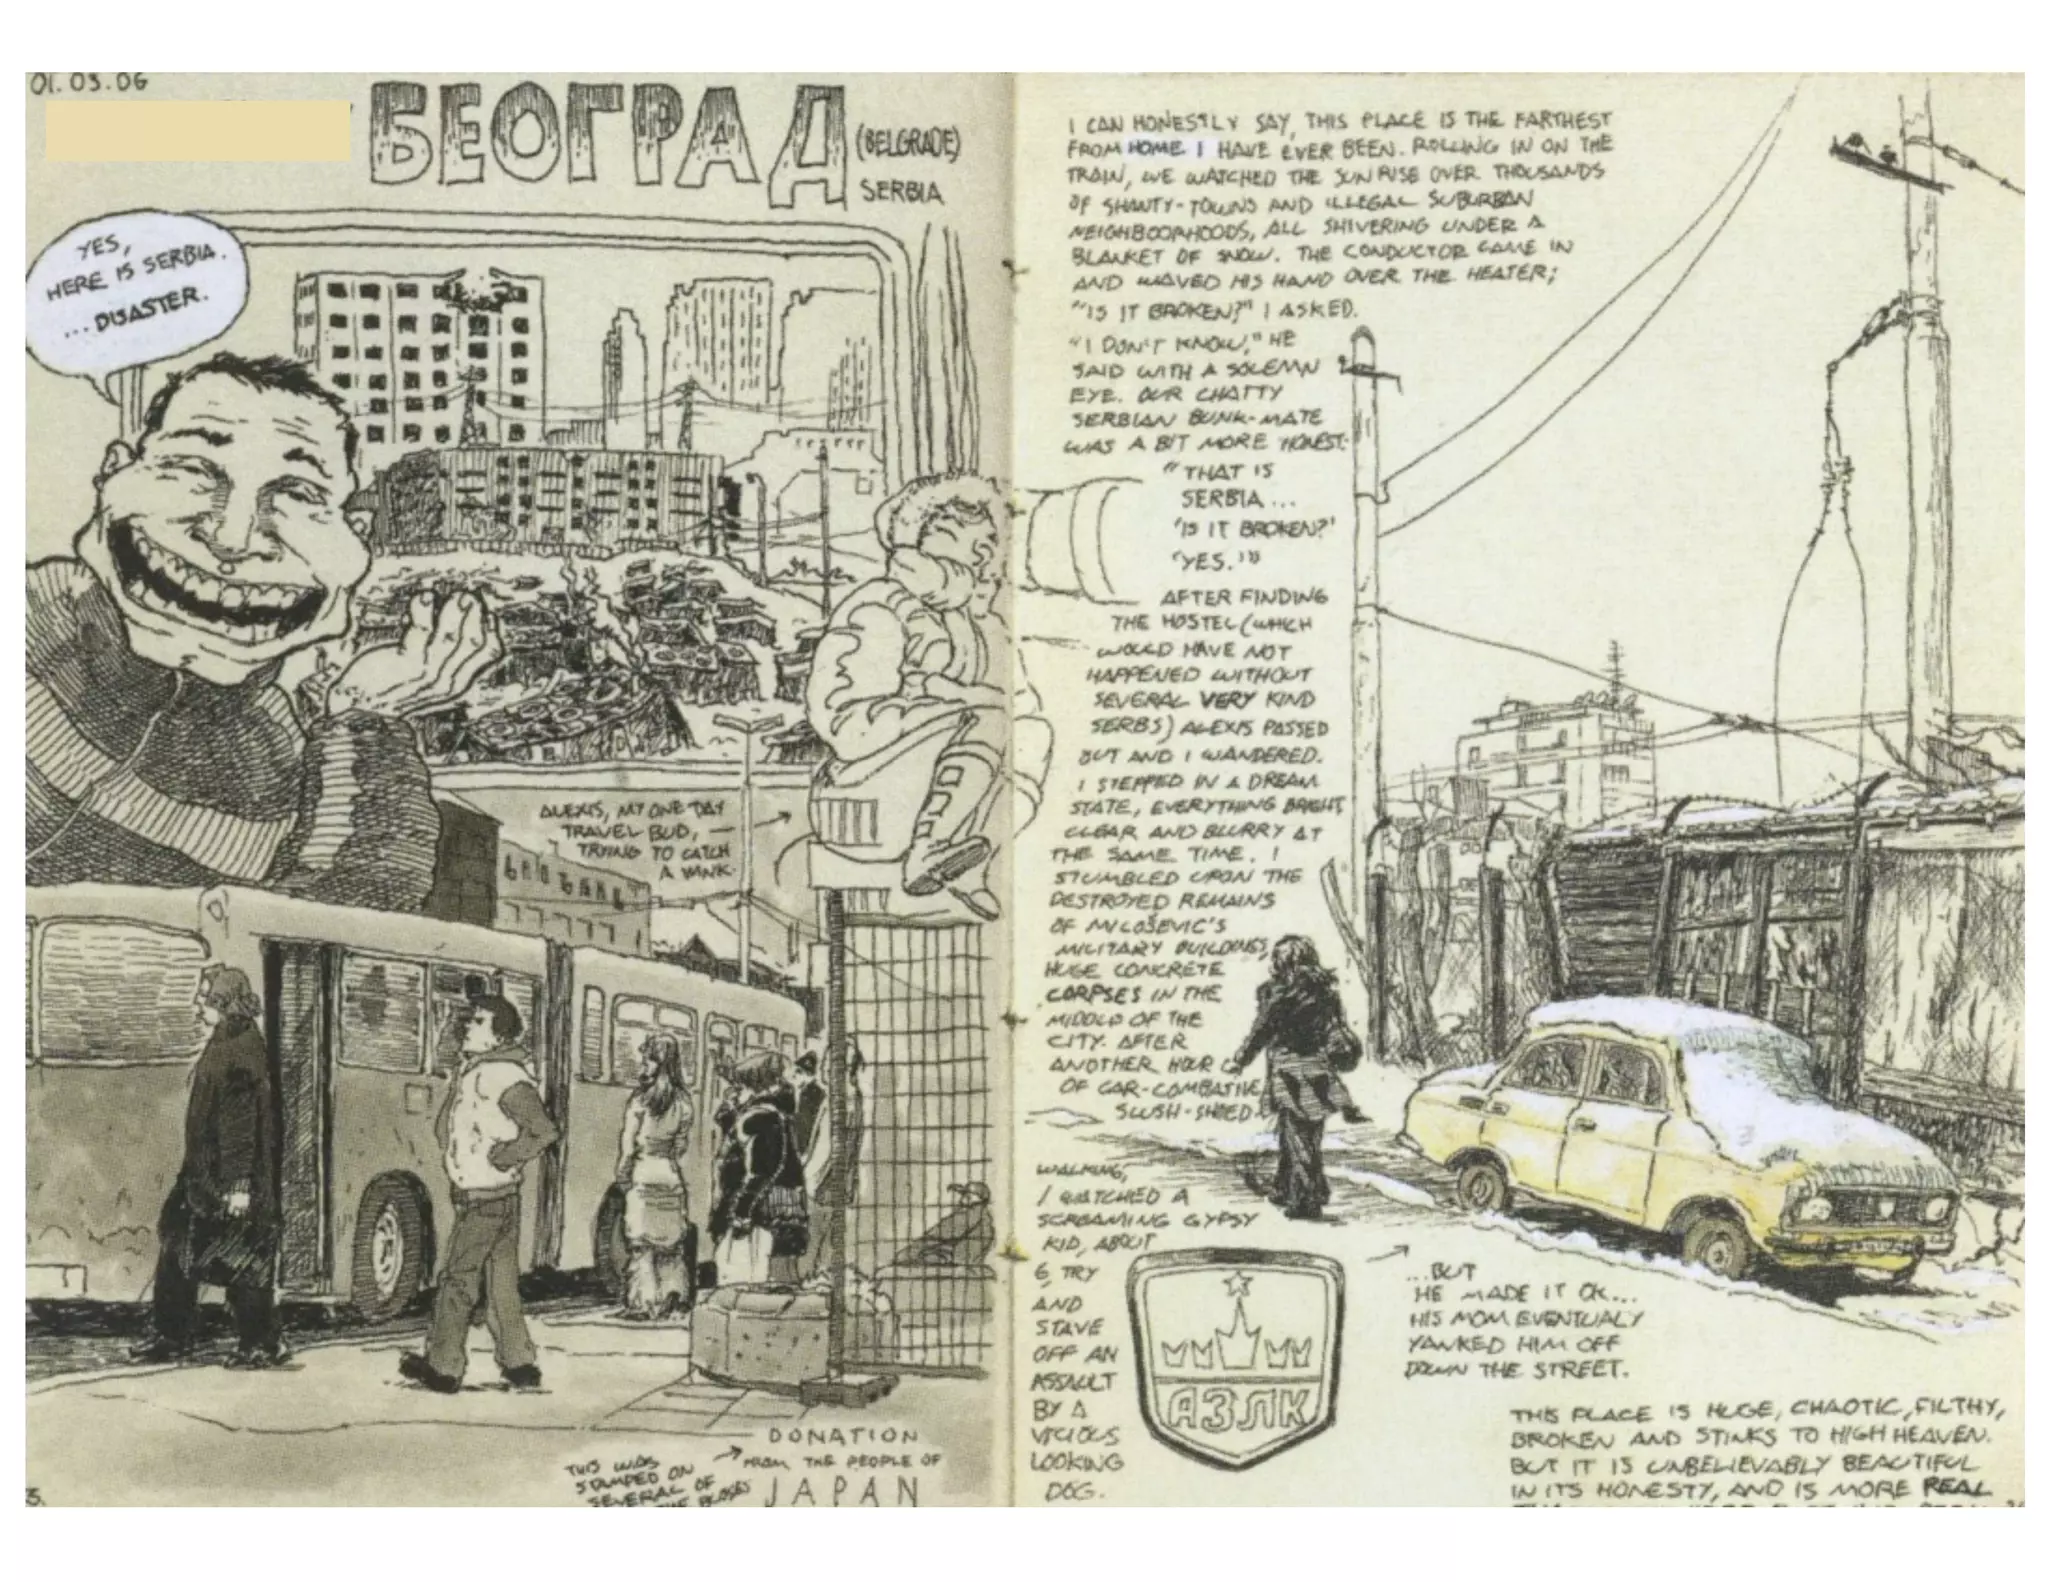 01.03.06
БЕОГРАД
(BELGRADE)
SERBIA
YES,
HERE IS SERBIA.
...DISASTER.
ALEXIS, MY ONE DAY
TRAVEL BUD,
TRYING TO CATCH
A WINK.
THIS WAS
STAMPED ON
SEVERAL OF
THE BUSES
DONATION
FROM THE PEOPLE OF
JAPAN
3.
I CAN HONESTLY SAY, THIS PLACE IS THE FARTHEST
FROM HOME I HAVE EVER BEEN. ROLLING IN ON THE
TRAIN, WE WATCHED THE SUN RISE OVER THOUSANDS
OF SHANTY-TOWNS AND ILLEGAL SUBURBAN
NEIGHBOORHOODS, ALL SHIVERING UNDER A
BLANKET OF SNOW. THE CONDUCTOR CAME IN
AND WAVED HIS HAND OVER THE HEATER;
"IS IT BROKEN?" I ASKED.
"I DON'T KNOW," HE
SAID WITH A SOLEMN
EYE. OUR CHATTY
SERBIAN BUNK-MATE
WAS A BIT MORE HONEST.
"THAT IS
SERBIA...
'IS IT BROKEN?'
'YES.'"
AFTER FINDING
THE HOSTEL (WHICH
WOULD HAVE NOT
HAPPENED WITHOUT
SEVERAL VERY KIND
SERBS) ALEXIS PASSED
OUT AND I WANDERED.
I STEPPED IN A DREAM
STATE, EVERYTHING BRIGHT,
CLEAR AND BLURRY AT
THE SAME TIME. I
STUMBLED UPON THE
DESTROYED REMAINS
OF MILOŠEVIC'S
MILITARY BUILDINGS,
HUGE CONCRETE
CORPSES IN THE
MIDDLE OF THE
CITY. AFTER
ANOTHER HOUR
OF CAR-COMBATIVE
SLUSH-SHOED
WALKING,
I WATCHED A
SCREAMING GYPSY
KID, ABOUT
6, TRY
AND
STAVE
OFF AN
ASSAULT
BY A
VICIOUS
LOOKING
DOG.
АЗЛК
...BUT
HE MADE IT OK...
HIS MOM EVENTUALY
YANKED HIM OFF
DOWN THE STREET.
THIS PLACE IS HUGE, CHAOTIC, FILTHY,
BROKEN AND STINKS TO HIGH HEAVEN.
BUT IT IS UNBELIEVABLY BEAUTIFUL
IN ITS HONESTY, AND IS MORE REAL